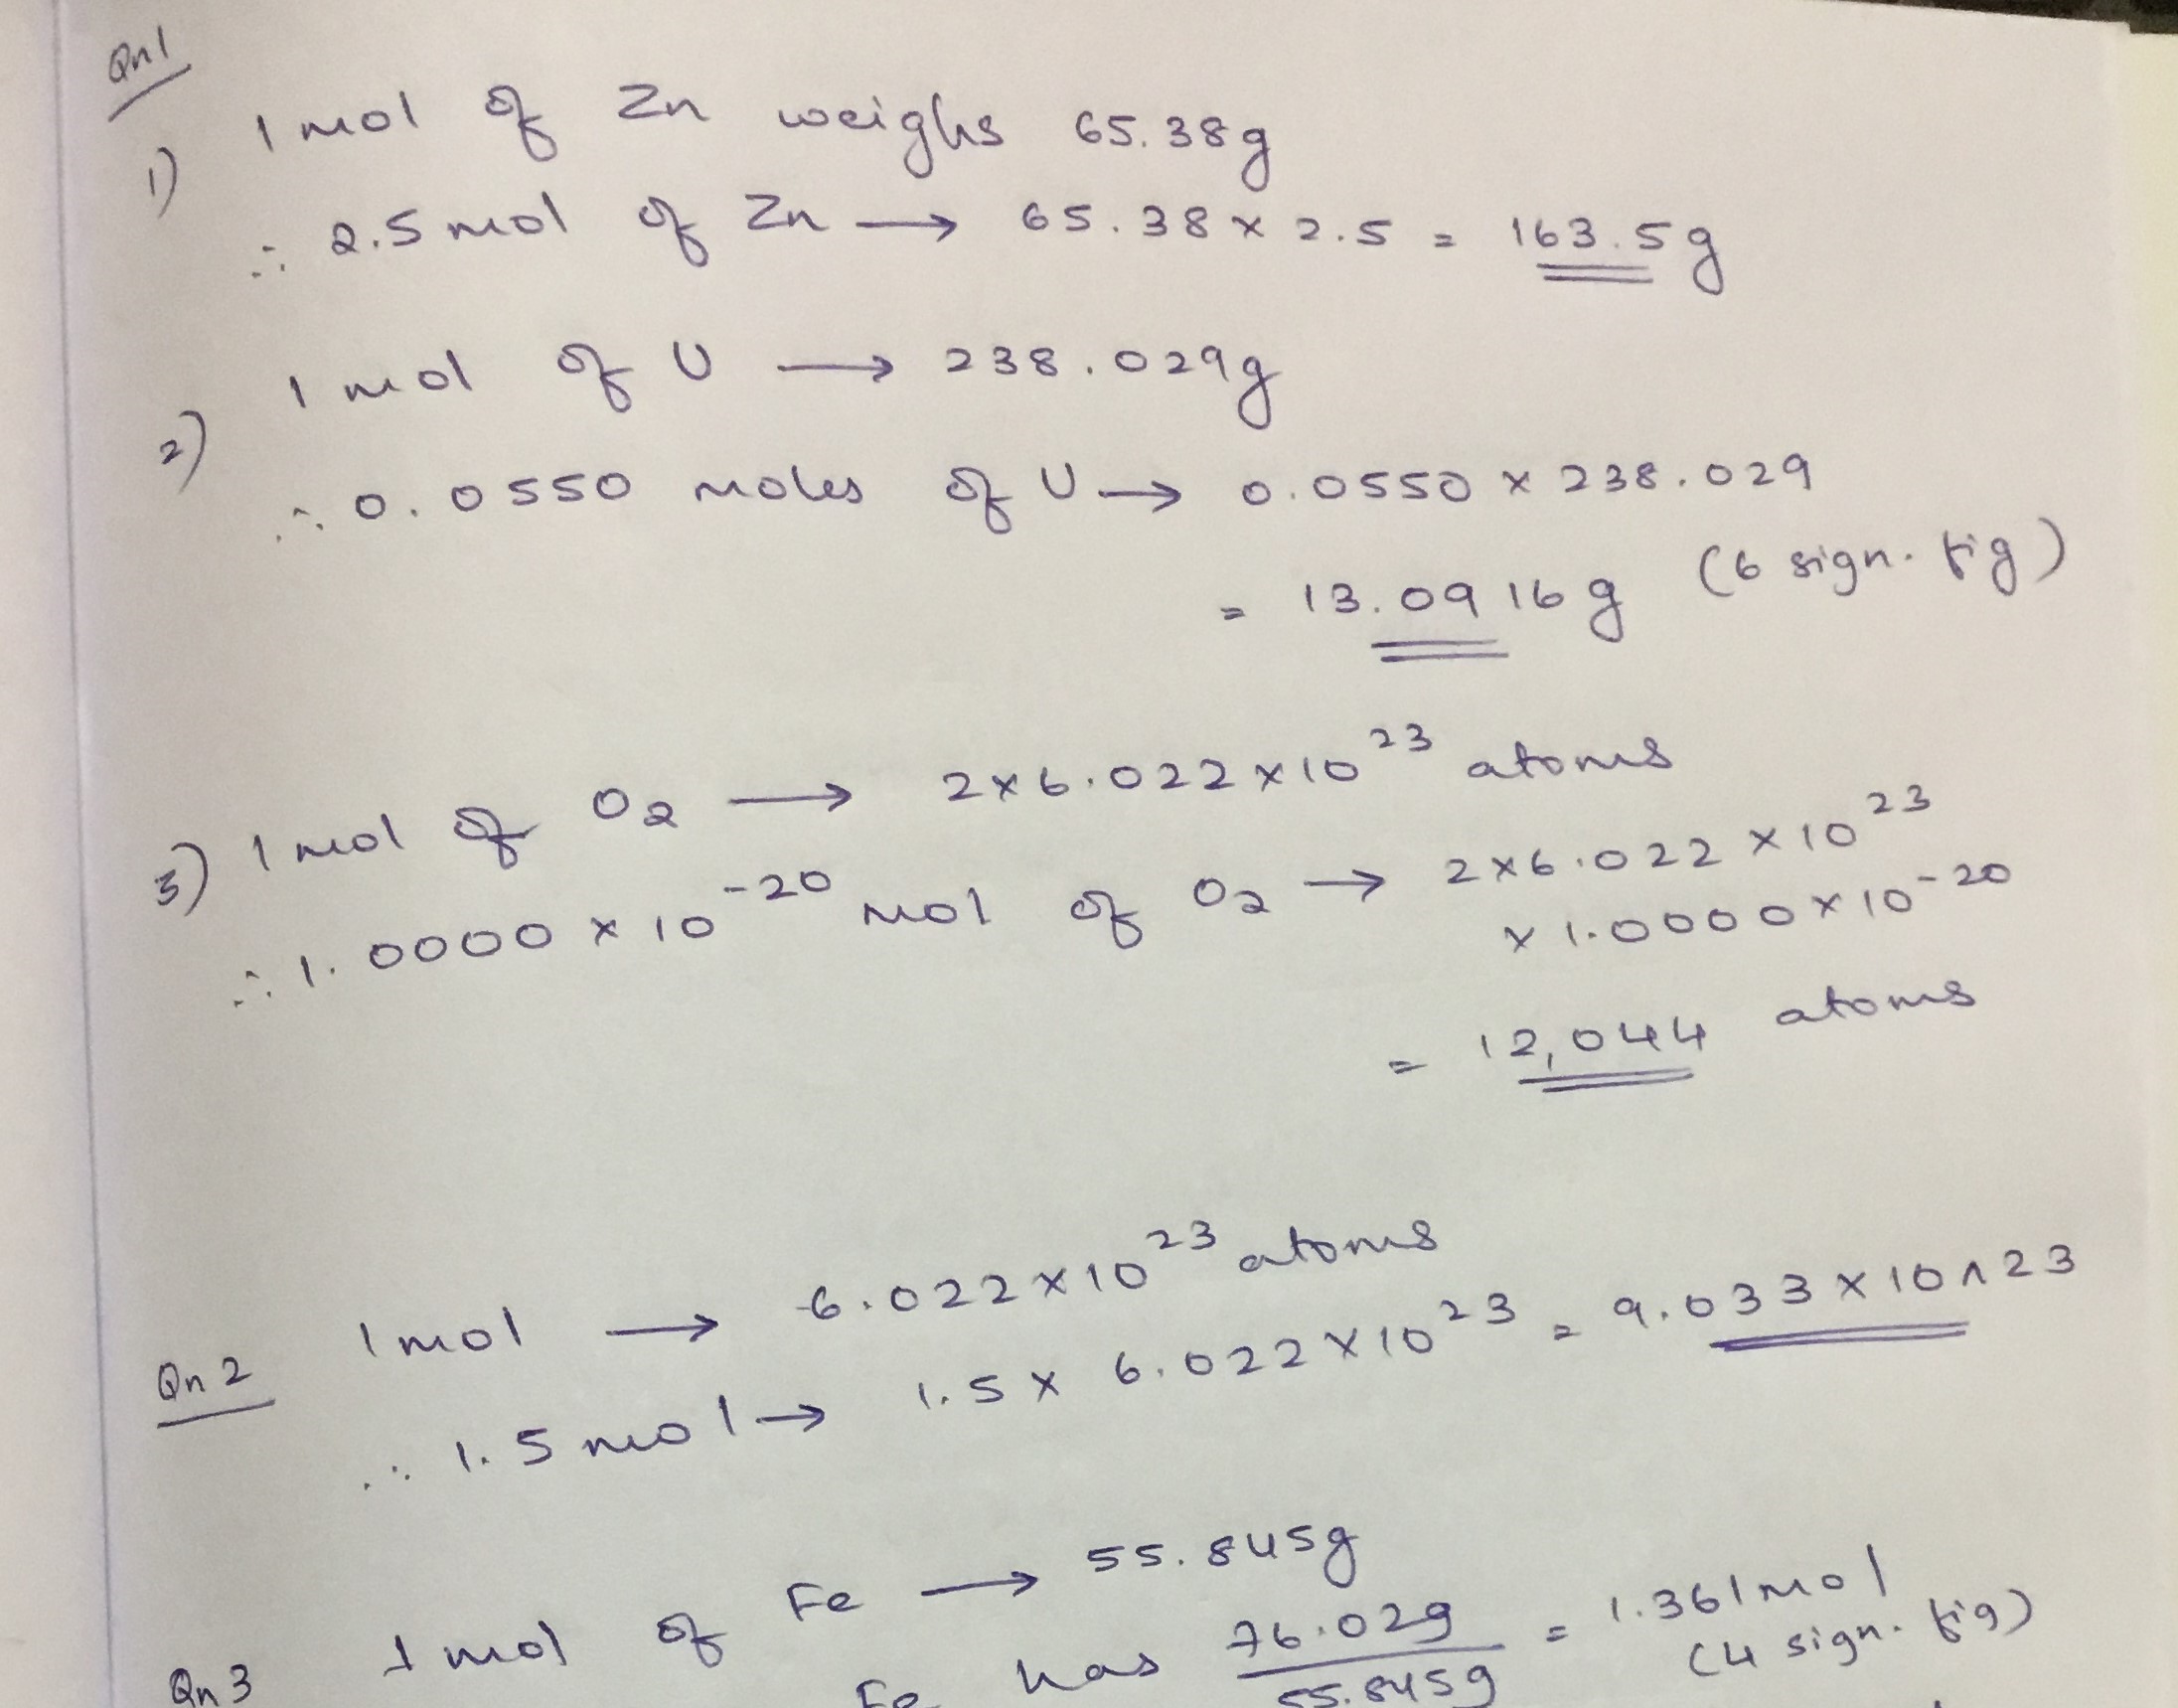 Qn1
1) 1 mol of Zn weighs 65.38g
∴ 2.5 mol of Zn → 65.38 × 2.5 = 163.5g
2) 1 mol of U → 238.029g
∴ 0.0550 moles of U → 0.0550 × 238.029
= 13.0916g (6 sign. fig)
3) 1 mol of O₂ → 2×6.022×10²³ atoms
∴ 1.0000 × 10⁻²⁰ mol of O₂ → 2×6.022×10²³
×1.0000×10⁻²⁰
= 12,044 atoms
Qn 2 1 mol → 6.022×10²³ atoms
∴ 1.5 mol → 1.5 × 6.022×10²³ = 9.033×10^23
Qn 3 1 mol of Fe → 55.845g
Fe has 76.02g / 55.845g = 1.361mol
(4 sign. fig)